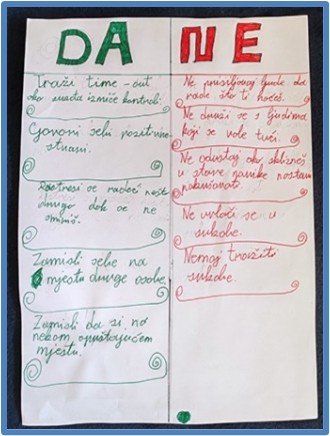 DA
Traži time-out
ako svađa izmiče kontroli.
Govori sebi pozitivne
stvari.
Rastresi se radeći nešto
drugo dok se ne
smiriš.
Zamisli sebe na
mjestu druge osobe.
Zamisli da si na
nekom opuštajućem
mjestu.
NE
Ne prisiljavaj ljude da
rade što ti hoćeš.
Ne druži se s ljudima
koji se vole tući.
Ne odustaj ako sklizneš
u stare navike nastavi
Ne uvlači se u
sukobe.
Nemoj tražiti
sukobe.